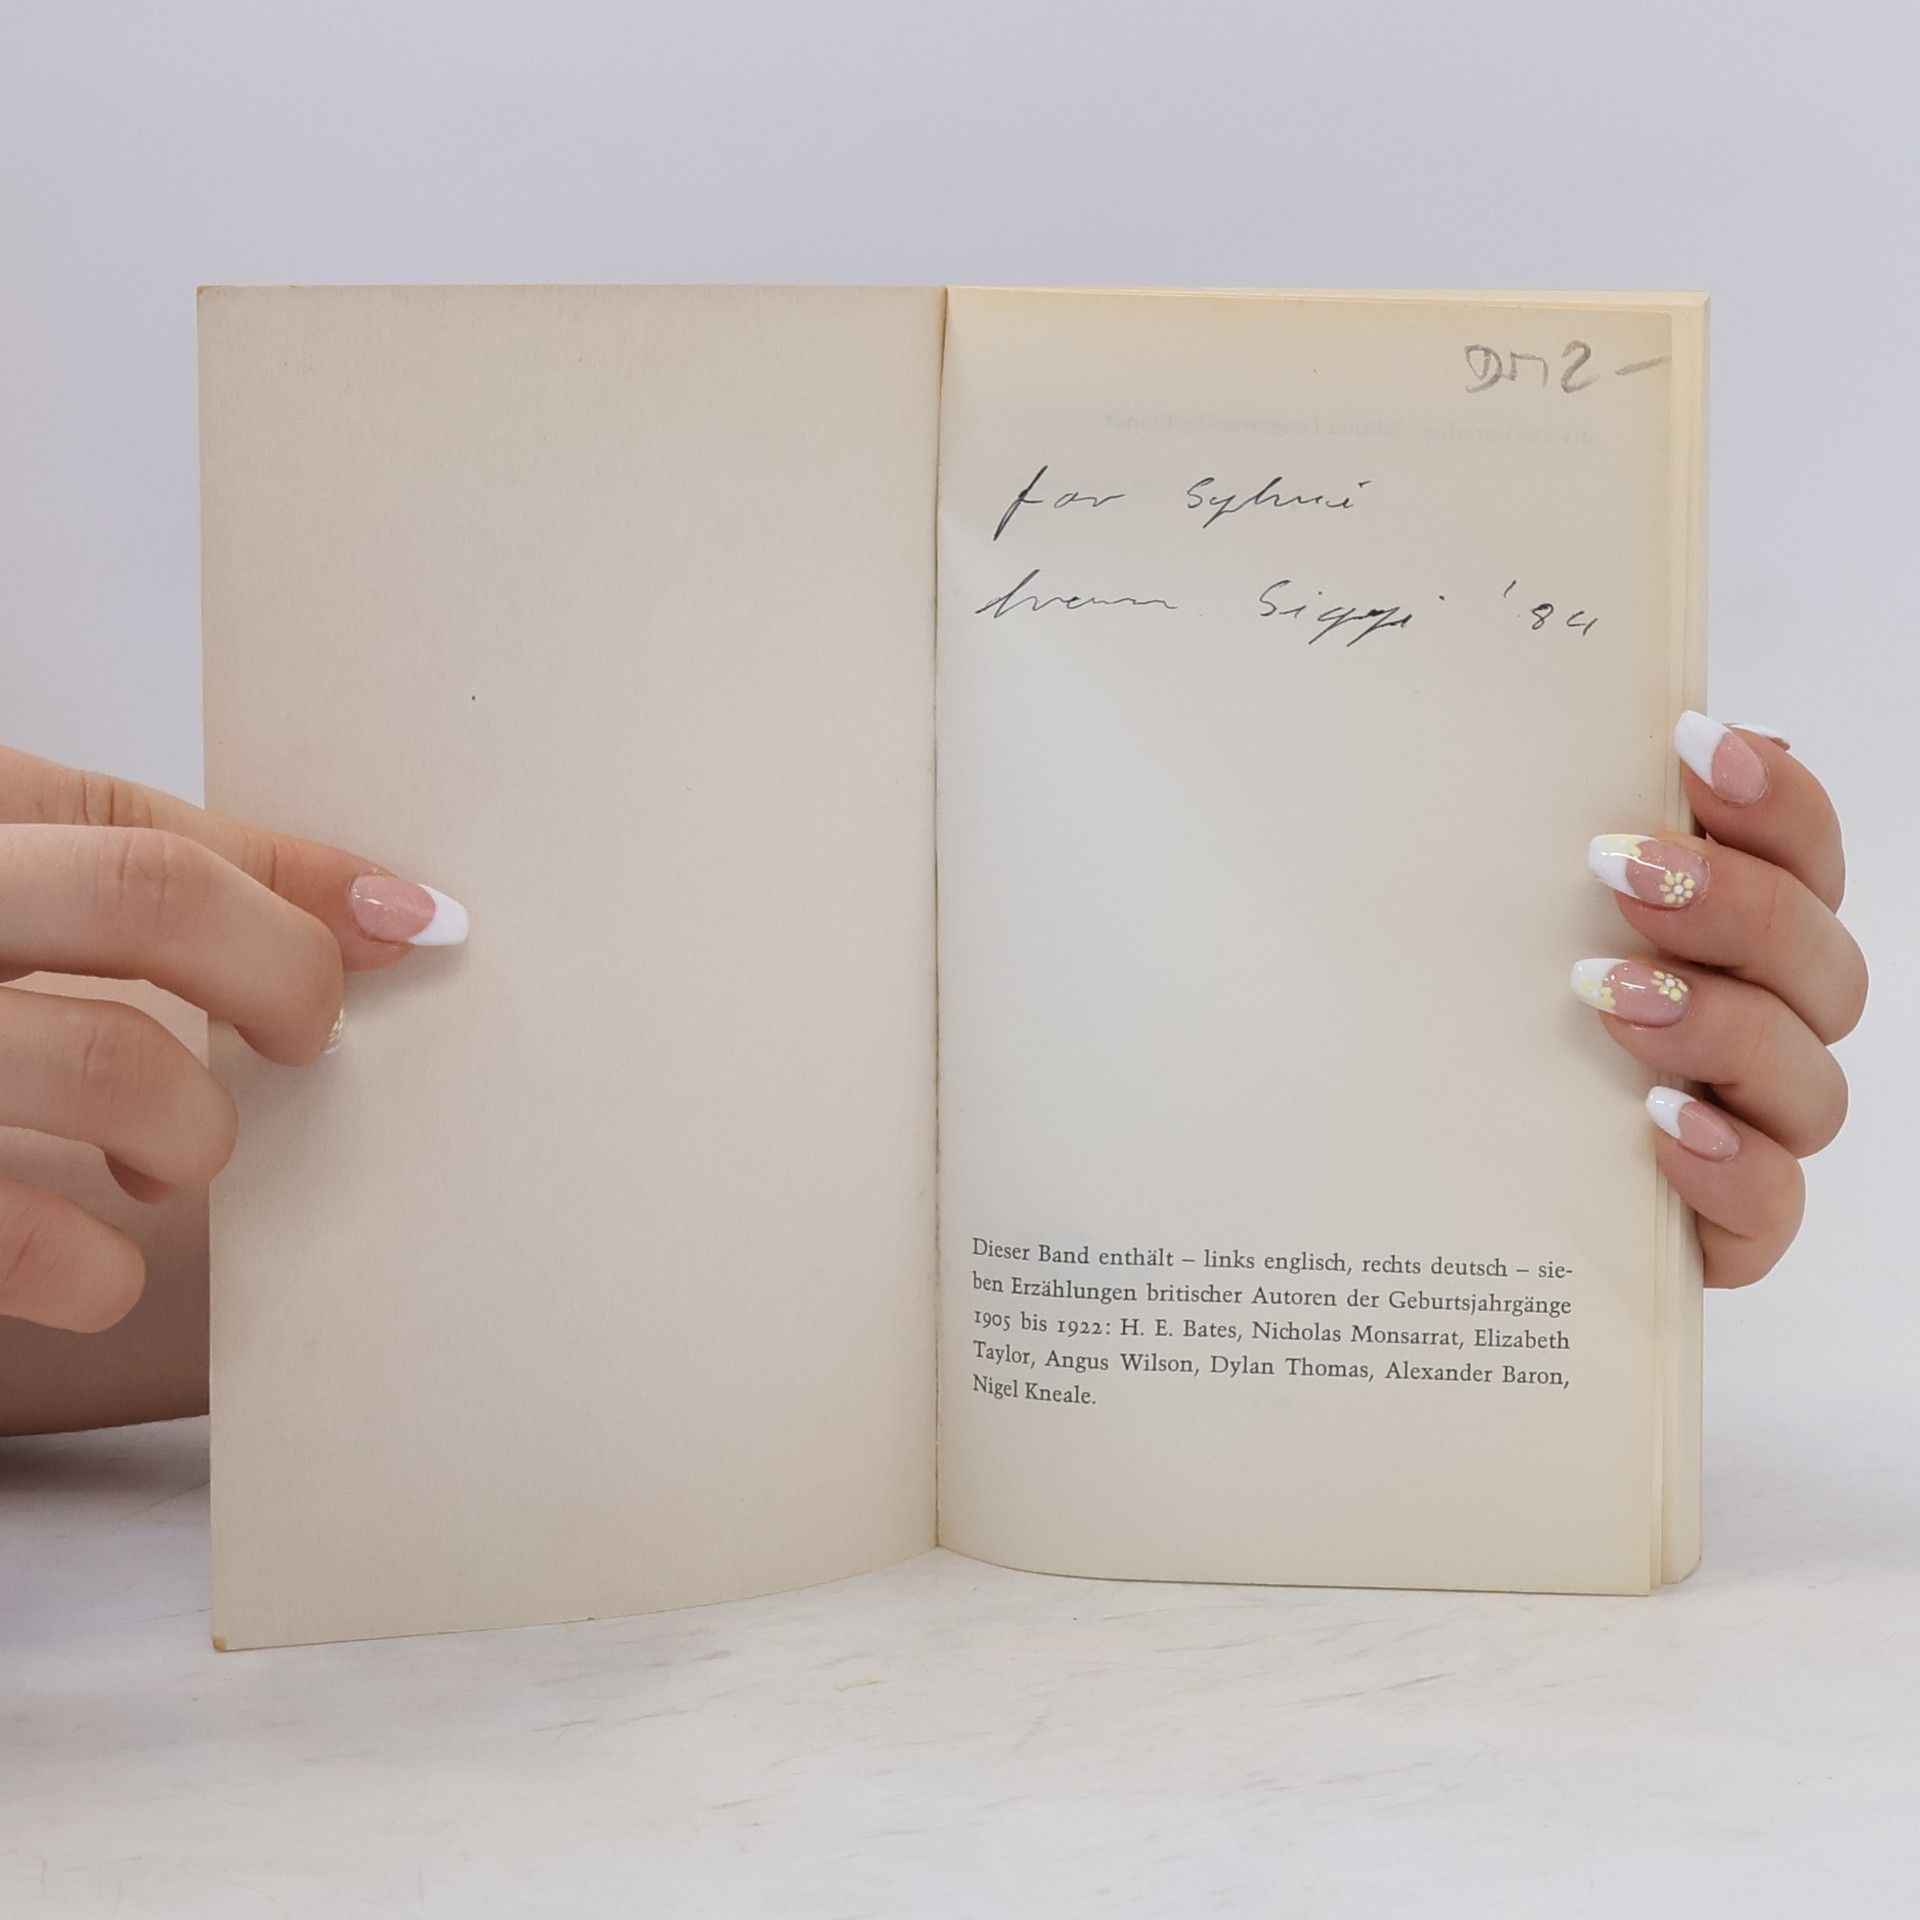 DM 2 –
for Sylvai
from Siggi '84
Dieser Band enthält – links englisch, rechts deutsch – sie-
ben Erzählungen britischer Autoren der Geburtsjahrgänge
1905 bis 1922: H. E. Bates, Nicholas Monsarrat, Elizabeth
Taylor, Angus Wilson, Dylan Thomas, Alexander Baron,
Nigel Kneale.